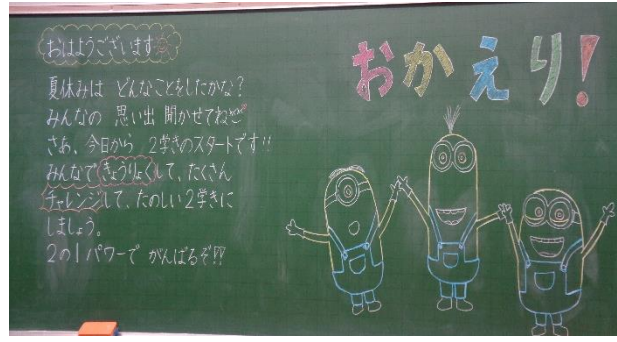 おはようございます
夏休みは どんなことをしたかな?
みんなの 思い出 聞かせてね
さあ、今日から 2学きのスタートです!!
みんなで きょうりょくして、たくさん
チャレンジして、たのしい2学きに
しましょう。
2の1パワーで がんばるぞ!!
おかえり!